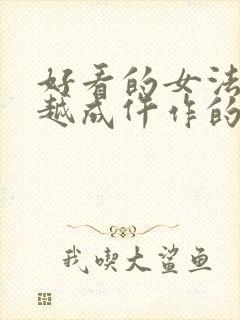 好看的女法
越成仵作的
我喫大鲨鱼